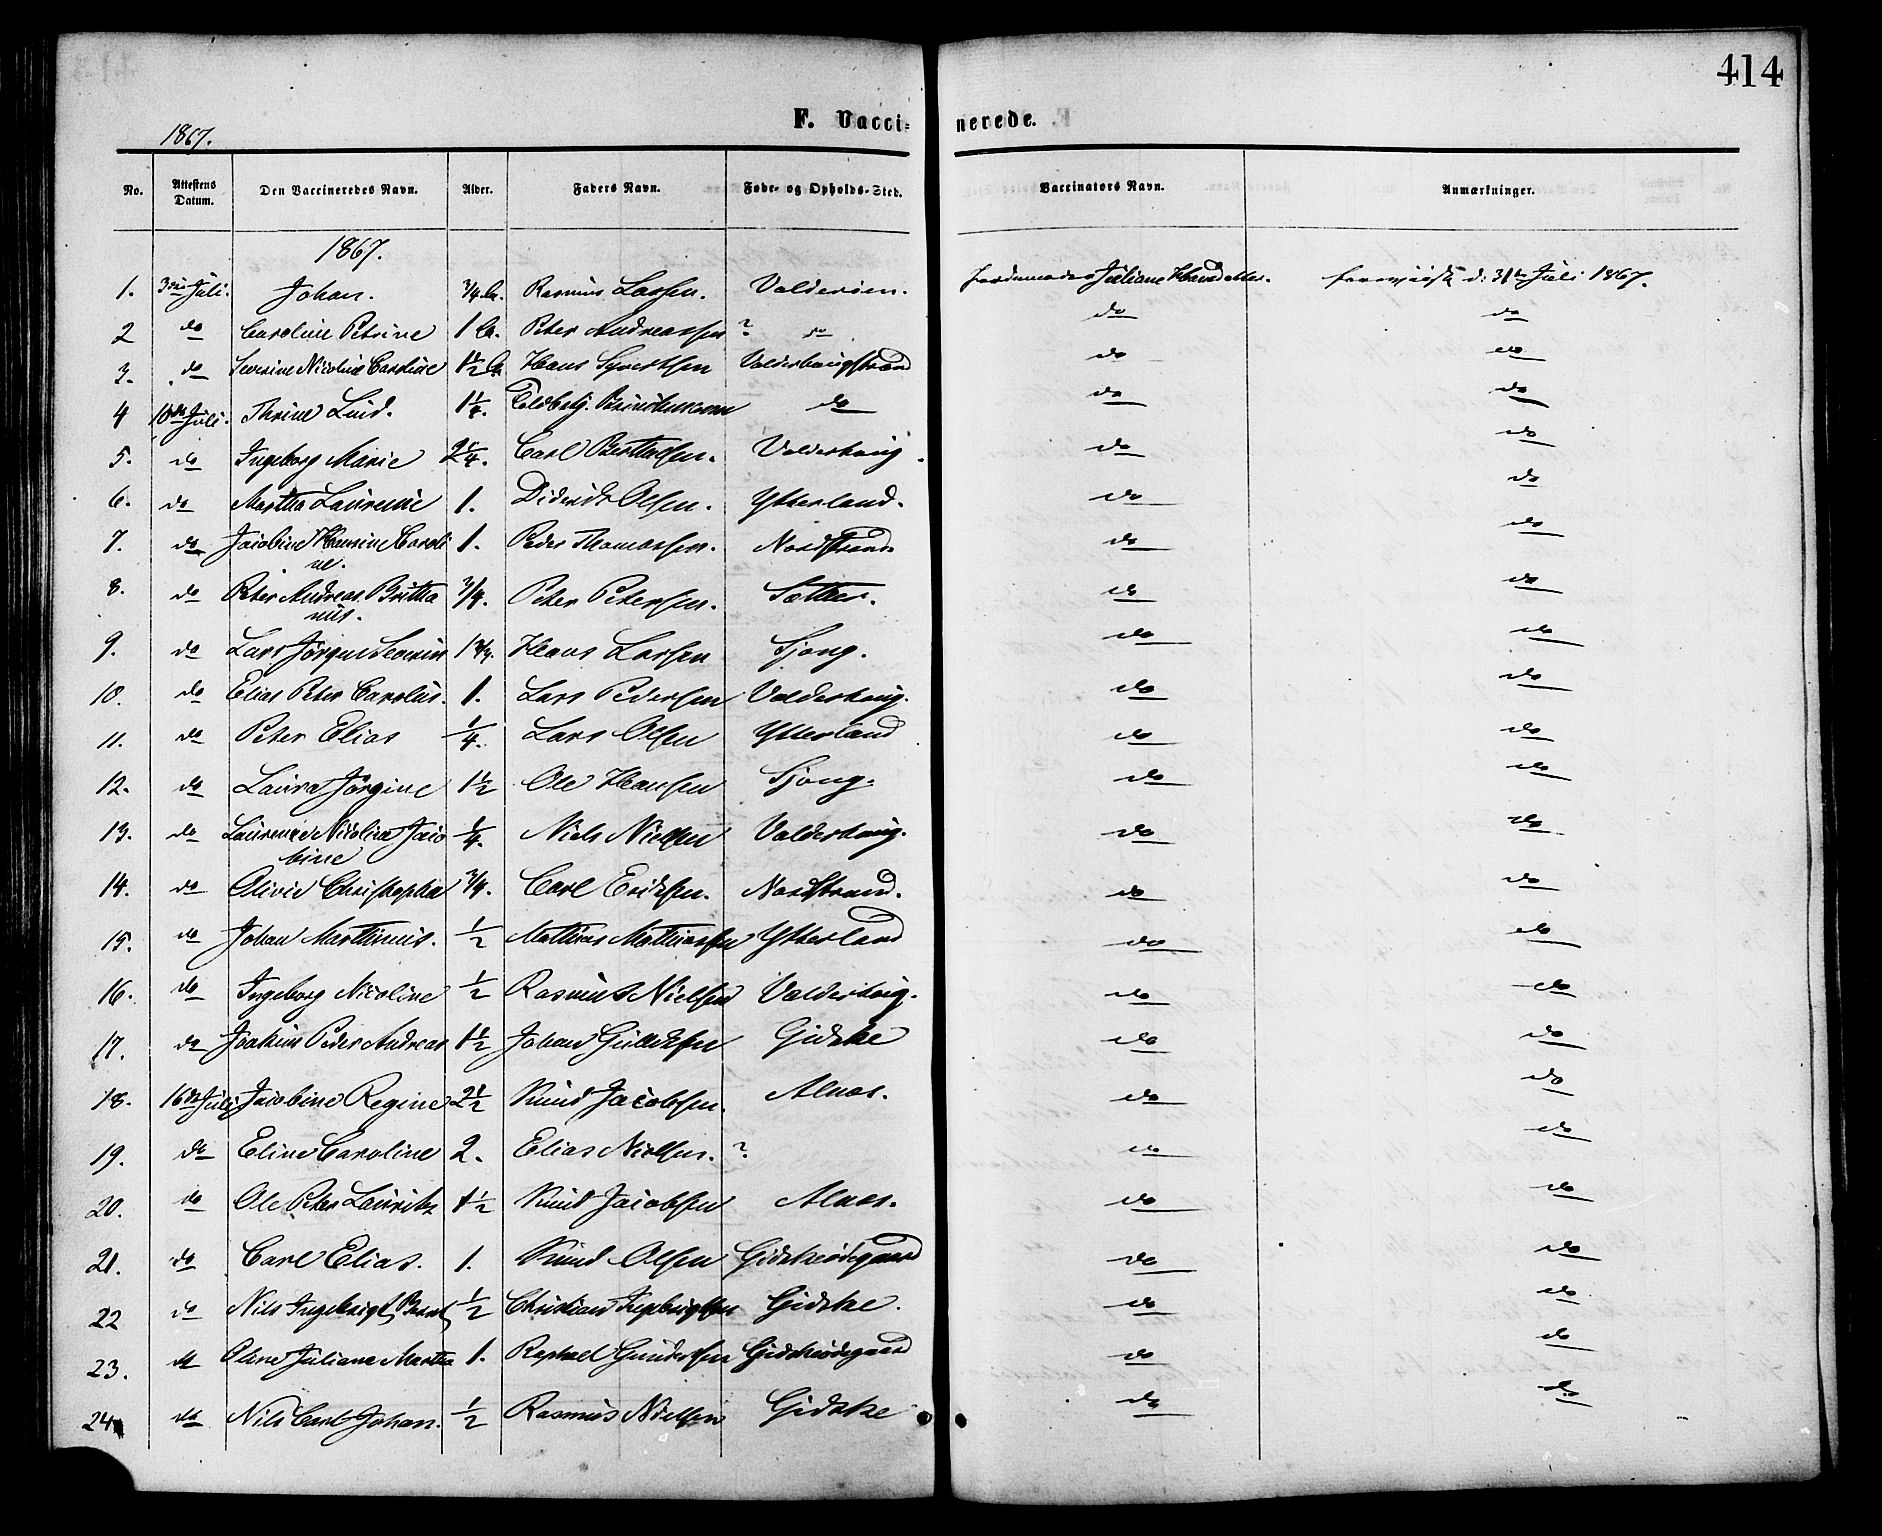 414
F. Vaccinerede.
1867.
No. Attestens Datum. Den Vaccineredes Navn. Alder. Faders Navn. Føde- og Opholds-Sted. Vaccinators Navn. Anmærkninger.
1867.
1. 3die Juli. Johan. 3/4 Rasmus Larsen. Valderöen. Juliane d: 31te Juli 1867.
2 do Caroline Petrine 1 Peter Andreassen ? do do do
3. do Severine Nicoline Caroline 1 1/2 Hans Syvertsen Valderhougstrand do do
4 10de Juli. Thrine Lind. 1 1/4. do do do
5. do Ingeborg Marie 2 1/4. Carl Berthelsen. Valderhoug do do
6. do Martha Laurenie 1. Diderik Olsen. Ytterland. do do
7. do Jacobine Hansine Caroli 1. Peder Thomassen. Nordstrand do do
ne.
8. do Peter Andreas Britha 3/4. Peter Petersen. Sæther. do do
nus.
9. do Lars Jørgen Severin 1 3/4. Hans Larsen Sjong. do do
10. do Elias Peter Carolus. 1. Lars Pedersen Valderhoug. do do
11. do Peter Elias 1/4. Lars Olsen Ytterland do do
12. do Laura Jørgine 1 1/2 Ole Hansen Sjong. do do
13. do Laurense Nicolea Jaco 1/4. Niels Nielsen Valderhoug. do do
bine
14. do Olivie Christopha 3/4. Carl Eriksen. Nordstrand. do do
15. do Johan Martinus. 1/2 Mathias Mathiassen Ytterland do do
16. do Ingeborg Nicoline 1/2 Rasmus Nielsen Valderhoug. do do
17. do Joakim Peder Andreas 1 1/2 Johan Gidske do do
18. 16de Juli Jacobine Regine 2 1/2 Knud Jacobsen. Alnæs. do do
19. do Eline Caroline 2. Elias Nielsen. ? do do
20. do Ole Peter Lauritz 1 1/2 Knud Jacobsen Alnæs. do do
21. do Carl Elias. 1. Knud Olsen Gidskeödegaard do do
22 do Nils Ingebrigt Bernt 1/2 Christian Ingebrigtsen Gidske. do do
23. do Oline Juliane Martha 1. Raphael Gundersen Gidskeödegaard do do
24. do Nils Carl Johan. 1/2 Rasmus Nielsen Gidske do do